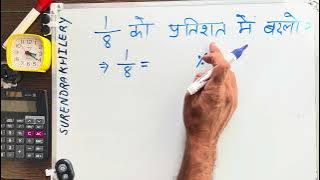 1/8 को प्रतिशत में बदलो ?
⇒ 1/8 =
SURENDRAKHILERY